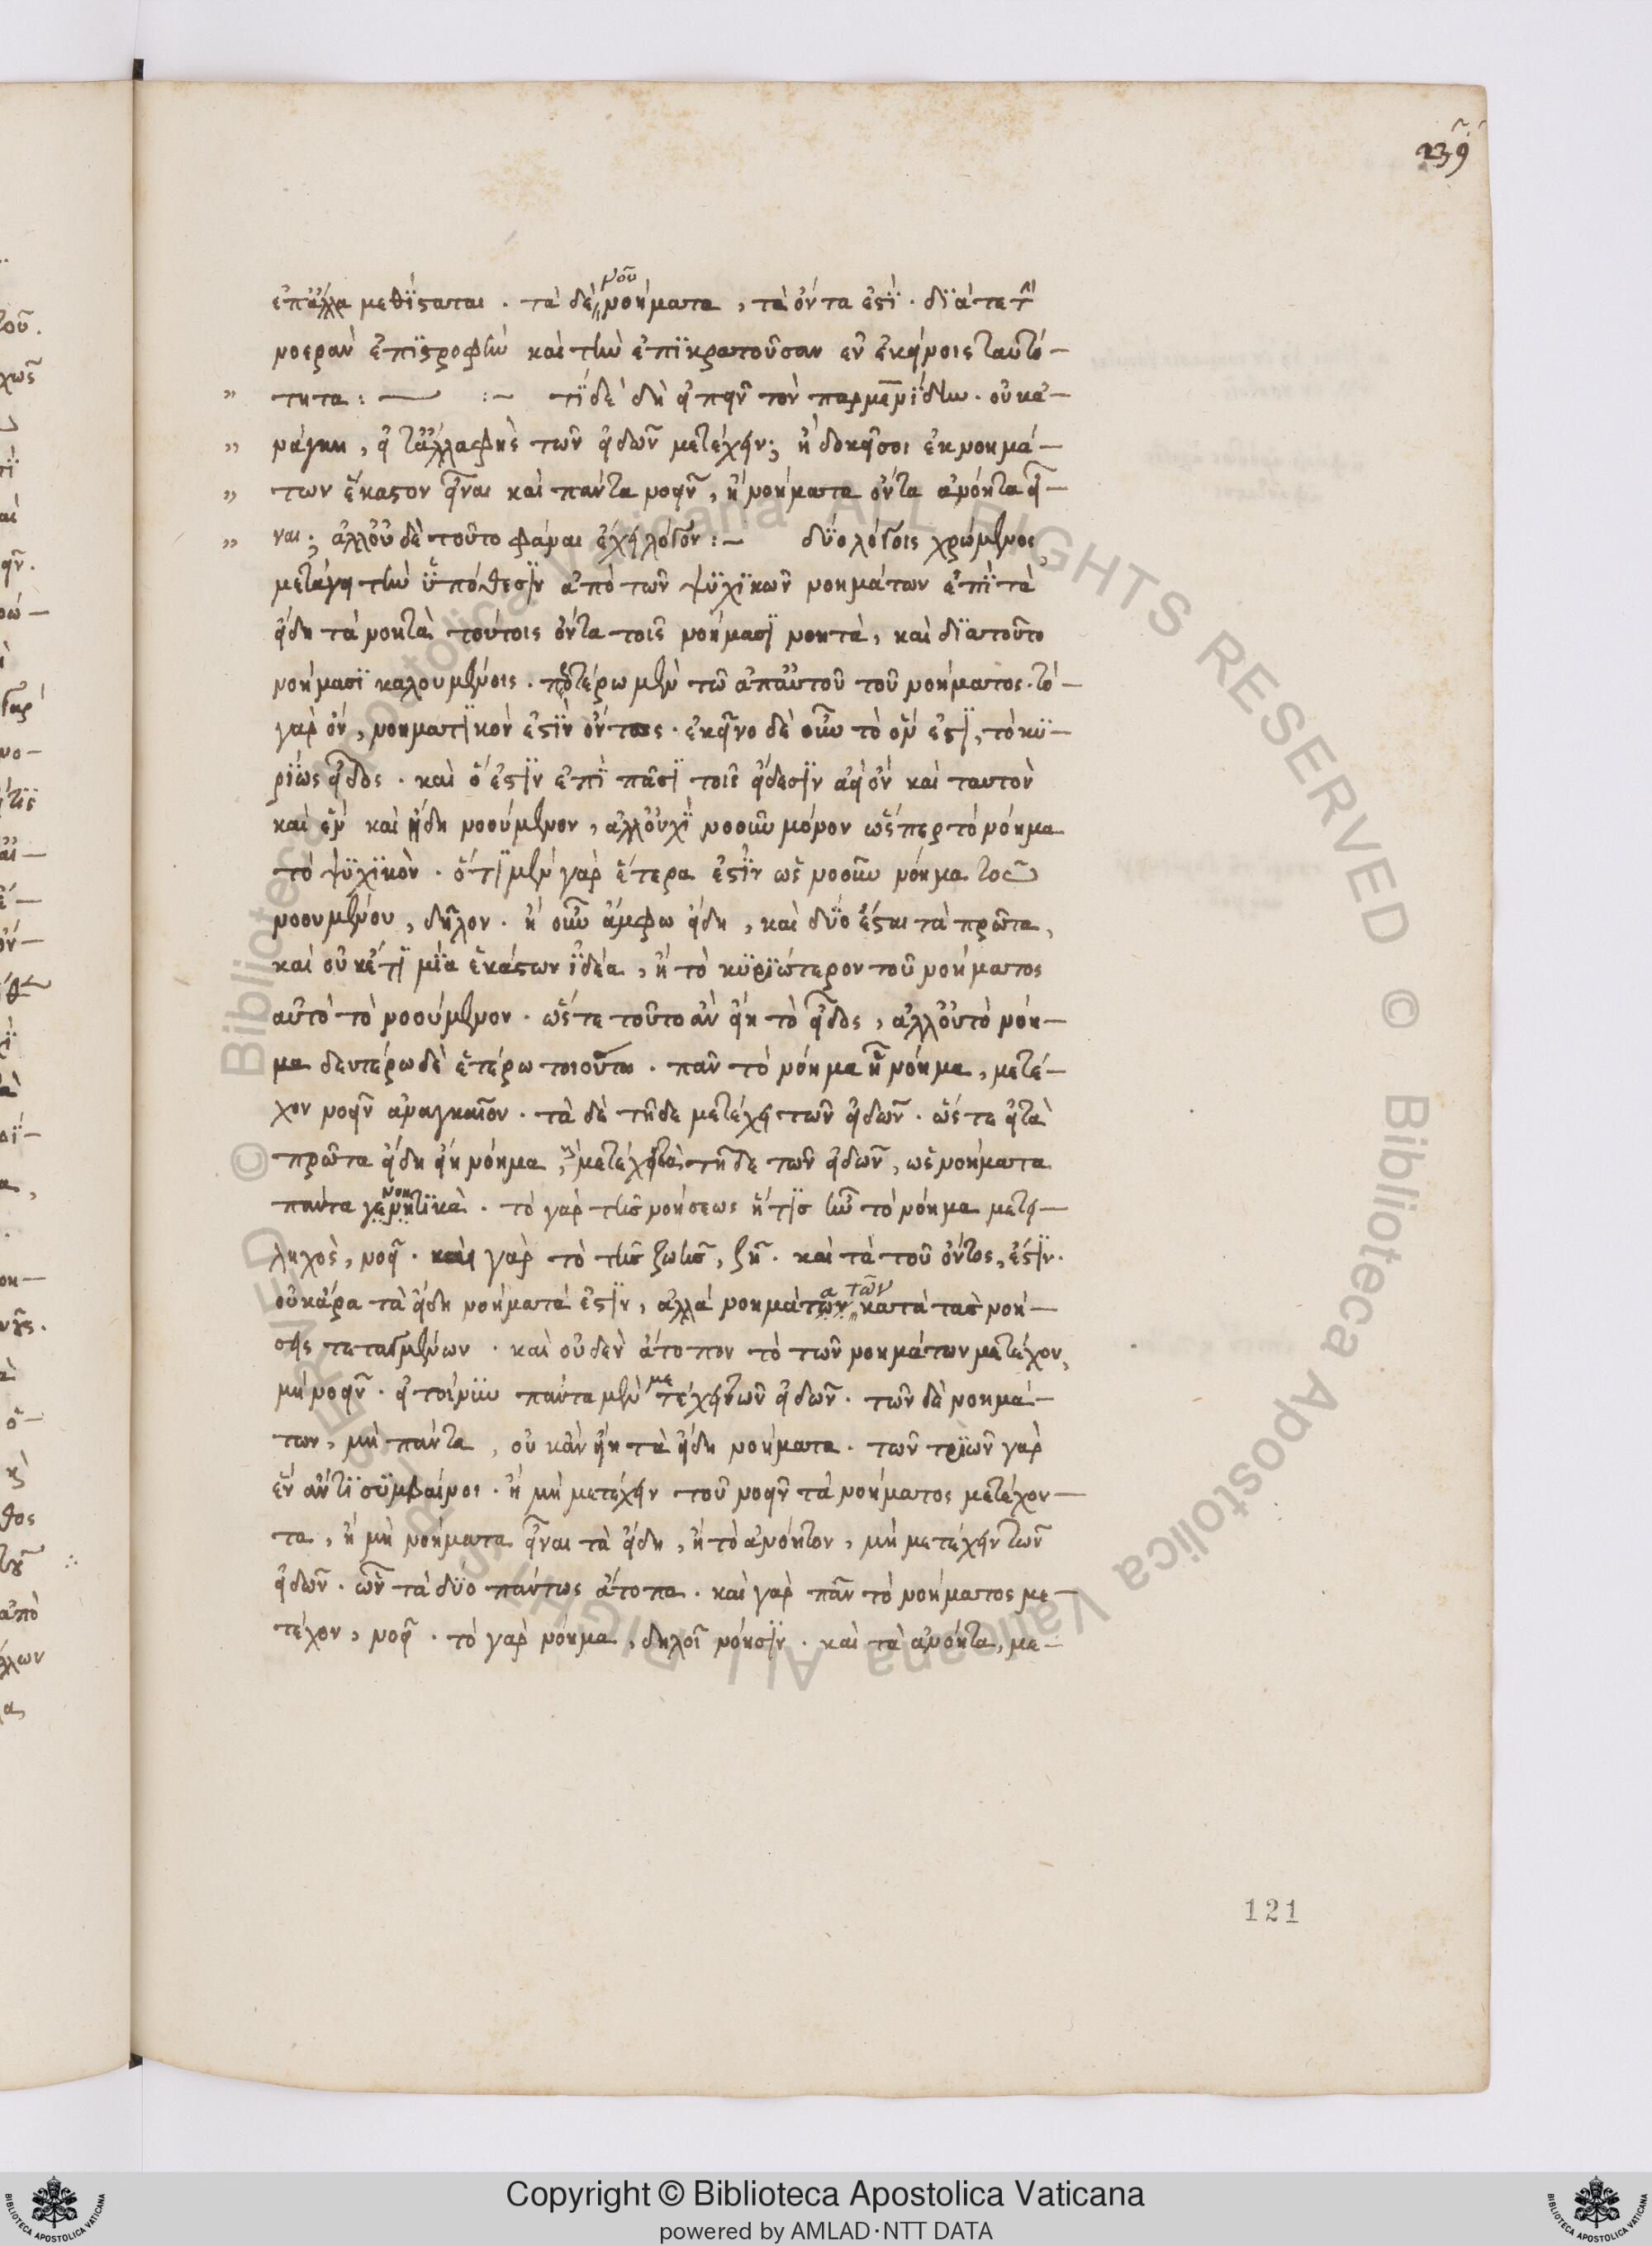 239
ἐπἄλλα μεθίσταται . τὰ δὲ νοῦ νοήματα , τὰ ὄντα ἐστὶ . διά τε τὴν
νοερὰν ἐπιστροφὴν καὶ τὴν ἐπικρατοῦσαν ἐν ἐκείνοις ταυτό-
" τητα : — :- τί δὲ δὴ εἰπεῖν τὸν παρμενίδην . οὐκ ἀ-
" νάγκη , εἰ τἄλλα φὴς τῶν εἰδῶν μετέχειν ; ἢ δοκεῖ σοι ἐκ νοημά-
" των ἕκαστον εἶναι καὶ πάντα νοεῖν , ἢ νοήματα ὄντα ἀνόητα εἶ-
" ναι ; ἀλλ' οὐδὲ τοῦτο φάναι ἔχει λόγον :- δύο λόγοις χρώμενος
μετάγει τὴν ὑπόθεσιν ἀπὸ τῶν ψυχικῶν νοημάτων ἐπὶ τὰ
εἴδη τὰ νοητὰ τούτοις ὄντα τοῖς νοήμασι νοητὰ , καὶ διατοῦτο
νοήμασι καλουμένοις . προτέρω μὲν τῶ ἀπαὐτοῦ τοῦ νοήματος . τὸ
γὰρ ὂν , νοηματικὸν ἐστὶν ὄντος . ἐκεῖνο δὲ οὖν τὸ ὄν ἐστι , τὸ κυ-
ρίως εἶδος . καὶ ὅ ἐστιν ἐπὶ πᾶσι τοῖς εἴδεσιν ἀεὶ ὂν καὶ ταυτὸν
καὶ ἓν καὶ ἤδη νοούμενον , ἀλλ' οὐχὶ νοοῦν μόνον ὥσπερ τὸ νόημα
τὸ ψυχικὸν . ὅτι μὲν γὰρ ἕτερα ἐστὶν ὡς νοοῦν νόημα τοῦ
νοουμένου , δῆλον . ἢ οὖν ἄμφω εἴδη , καὶ δύο ἔσται τὰ πρῶτα ,
καὶ οὐκέτι μία ἑκάστων ἰδέα , ἢ τὸ κυριώτερον τοῦ νοήματος
αὐτὸ τὸ νοούμενον . ὥστε τοῦτο ἂν εἴη τὸ εἶδος , ἀλλ' οὐ τὸ νόη-
μα δευτέρω δὲ ἑτέρω τοιούτω . πᾶν τὸ νόημα ἧ νόημα , μετέ-
χον νοεῖν ἀναγκαῖον . τὰ δὲ τῆδε μετέχει τῶν εἰδῶν . ὥστε εἰ τὰ
πρῶτα εἴδη εἴη νόημα , μετέχει τὰ τῆδε τῶν εἰδῶν , ὡς νοήματα
πάντα γενητικὰ νοη . τὸ γὰρ τῆς νοήσεως ἥτις ἦν τὸ νόημα μετει-
ληχὸς , νοεῖ . καὶ γὰρ τὸ τῆς ζωῆς , ζῆ . καὶ τὰ τοῦ ὄντος , ἔστιν .
οὐκ ἄρα τὰ εἴδη νοήματά ἐστιν , ἀλλὰ νοημάτων α τῶν κατὰ τὰς νοή-
σεις τεταγμένων . καὶ οὐδὲν ἄτοπον τὸ τῶν νοημάτων μετέχον ,
μὴ νοεῖν . εἰ τοίνυν πάντα μὲν μετέχει τῶν εἰδῶν . τῶν δὲ νοημά-
των , μὴ πάντα , οὐκ ἂν εἴη τὰ εἴδη νοήματα . τῶν τριῶν γὰρ
ἕν ἄντι συμβαίνοι . ἢ μὴ μετέχειν τοῦ νοεῖν τὰ νοήματος μετέχον-
τα , ἢ μὴ νοήματα εἶναι τὰ εἴδη , ἢ τὸ ἀνόητον , μὴ μετέχειν τῶν
εἰδῶν . ὧν τὰ δύο πάντως ἄτοπα . καὶ γὰρ πᾶν τὸ νοήματος με-
τέχον , νοεῖ . τὸ γὰρ νόημα , δηλοῖ νόησιν . καὶ τὰ ἀνόητα , με-
121
© Biblioteca Apostolica Vaticana ALL RIGHTS RESERVED © Biblioteca Apostolica Vaticana ALL RIGHTS RESERVED
Copyright © Biblioteca Apostolica Vaticana
powered by AMLAD·NTT DATA
BIBLIOTECA APOSTOLICA VATICANA
BIBLIOTECA APOSTOLICA VATICANA